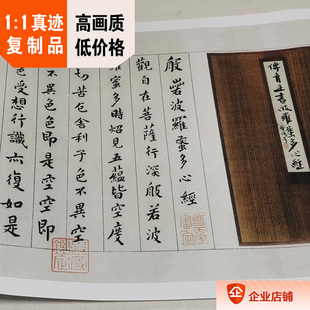 1:1真迹
复制品
高画质
低价格
般若波羅蜜多心經
觀自在菩薩行深般若波
羅蜜多時炤見五蘊皆空度
切苦㔾舍利子色不異空
不異色色即是空空即
色受想行識亦復如是
心經
企业店铺